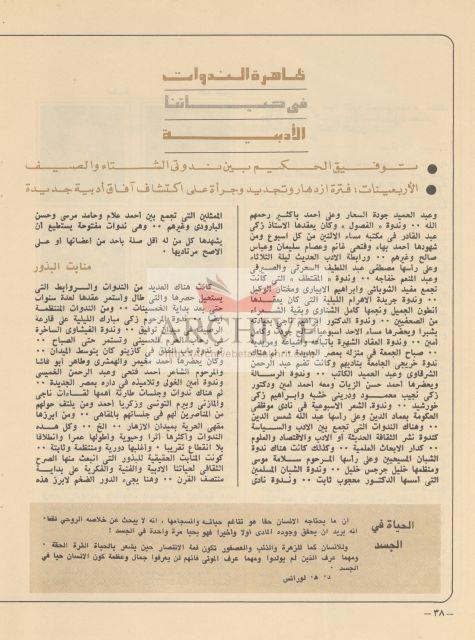 ظاهرة الندوات
فى حياتنا
الأدبية
توفيق الحكيم بين ندوتى الشتاء والصيف
الأربعينات: فترة ازدهار وتجديد وجرأة على اكتشاف آفاق أدبية جديدة
وعبد الحميد جودة السحار وعلى أحمد باكثير رحمهم
الله ·· وندوة « الفصول » وكان يعقدها الاستاذ زكى
عبد القادر فى مكتبه مساء الاثنين من كل اسبوع ومن
شهودها أحمد بهاء وفتحى غانم وعصام سليمان وعباس
صالح وغيرهم ·· ورابطة الادب الحديث ليلة الثلاثاء
وعلى رأسها مصطفى عبد اللطيف السحرتى والصيرفى
وعبد المنعم خفاجه ·· وندوة « المقتطف » التى كانت
تجمع مفيد الشوباشى وابراهيم الابيارى ومختار الوكيل
·· وندوة جريدة الاهرام الليلية التى كان يعقدها
انطون الجميل ونجمها كامل الشناوى وبقية الشعراء
من الصحفيين ·· وندوة الدكتور
بشبرا ويعضرها مساء الاحد
أمين ·· وندوة العقاد الشهيرة
·· صباح الجمعة فى منزله بمصر الجديدة
ندوة خريجى الجامعة بناديهم وكانت تضم عبد الرحمن
الشرقاوى وعبد الحميد الكاتب ·· وندوة الرسالة
ويعضرها أحمد حسن الزيات ومعه أحمد أمين ودكتور
زكى نجيب محمود ودرينى خشبه وابراهيم زكى
خورشيد ·· وندوة الشعر الاسبوعية فى نادى موظفى
الحكومة بعماد الدين وعلى رأسها عبد الله شمس الدين
·· وهناك الندوات التى تجمع بين الادب والسياسة
كندوة نشر الثقافة الحديثة أو الادب والاقتصاد والعلوم
·· كدار الابحاث العلمية ·· وكذلك كانت هناك ندوة
الشبان المسيحيين وعلى رأسها المرحوم سلامة موسى
ومنظمها خليل جرجس خليل ·· وندوة الشبان المسلمين
التى أسسها الدكتور محجوب ثابت ·· وندوة نادى
الممثلين التى تجمع بين أحمد علام وحامد مرسى وحسن
البارودى وغيرهم ·· وهى ندوات مفتوحة يستطيع أن
يشهدها كل من له أقل صلة بأحد من أعضائها أو على
الاصح مرتاديها ·
منابت البذور
كانت هناك العديد من الندوات والروابط التى
يستحيل حصرها والتى طال واستمر عقدها لعدة سنوات
حتى بعد بداية الخمسينات ·· ومن الندوات المنتظمة
أيضا ·· ندوة المرحوم زكى مبارك الليلية على قارعة
توفيق ·· وندوة الفيشاوى الساخرة
وتستمر حتى الصباح ··
فى كازينو كان يتوسط الميدان ··
وكان يعضرها أحمد مخيمر والهمشرى وطاهر أبو فاشا
والمرحوم الشاعر أحمد فتحى وعبد الرحمن الخميسى
·· وندوة أمين الخولى وتلاميذه فى داره بمصر الجديدة ··
ثم هناك ندوات وجلسات طارئة أهمها لقاءات ناجى
والمازنى وبيرم التونسى وزكريا أحمد ومن يلتف حولهم
من المناصرين لهم فى جلساتهم بالمقاهى ·· ومن أبرزها
مقهى الحرية بميدان الازهار ·· الخ ·· وكل هذه
الندوات وأكثرها أثرا وحيوية وأطولها عمرا وانطلاقا
بلا انقطاع تقريبا · وأغلبها دورية ومنتظمة وثابتة ··
كونت المنابت الحقيقية للبذور التى انبعث منها الصرح
الثقافى لحياتنا الادبية والفنية والفكرية على بداية
منتصف القرن ·· وهنا يجىء الدور الضخم لابرز هذه
ARCHIVE
الحياة في
الجسد
ان ما يحتاجه الانسان حقا هو تفاعم حياته وانسجامها ، انه لا يبحث عن خلاصه الروحي فقط·
انه يريد أن يحقق وجوده المادى أولا وأخيرا فهو يحيا مرة واحدة فى الجسد !
وللانسان كما للزهرة والذئب والعصفور تكون قمة الانتصار حين يشعر بالحياة الثرة الحقة ·
ومهما عرف الذين لم يولدوا ومهما عرف الموتى فانهم لن يعرفوا جمال وعظمة كون الانسان حيا فى
الجسد ·
د· هـ· لورانس
– ٣٨ –